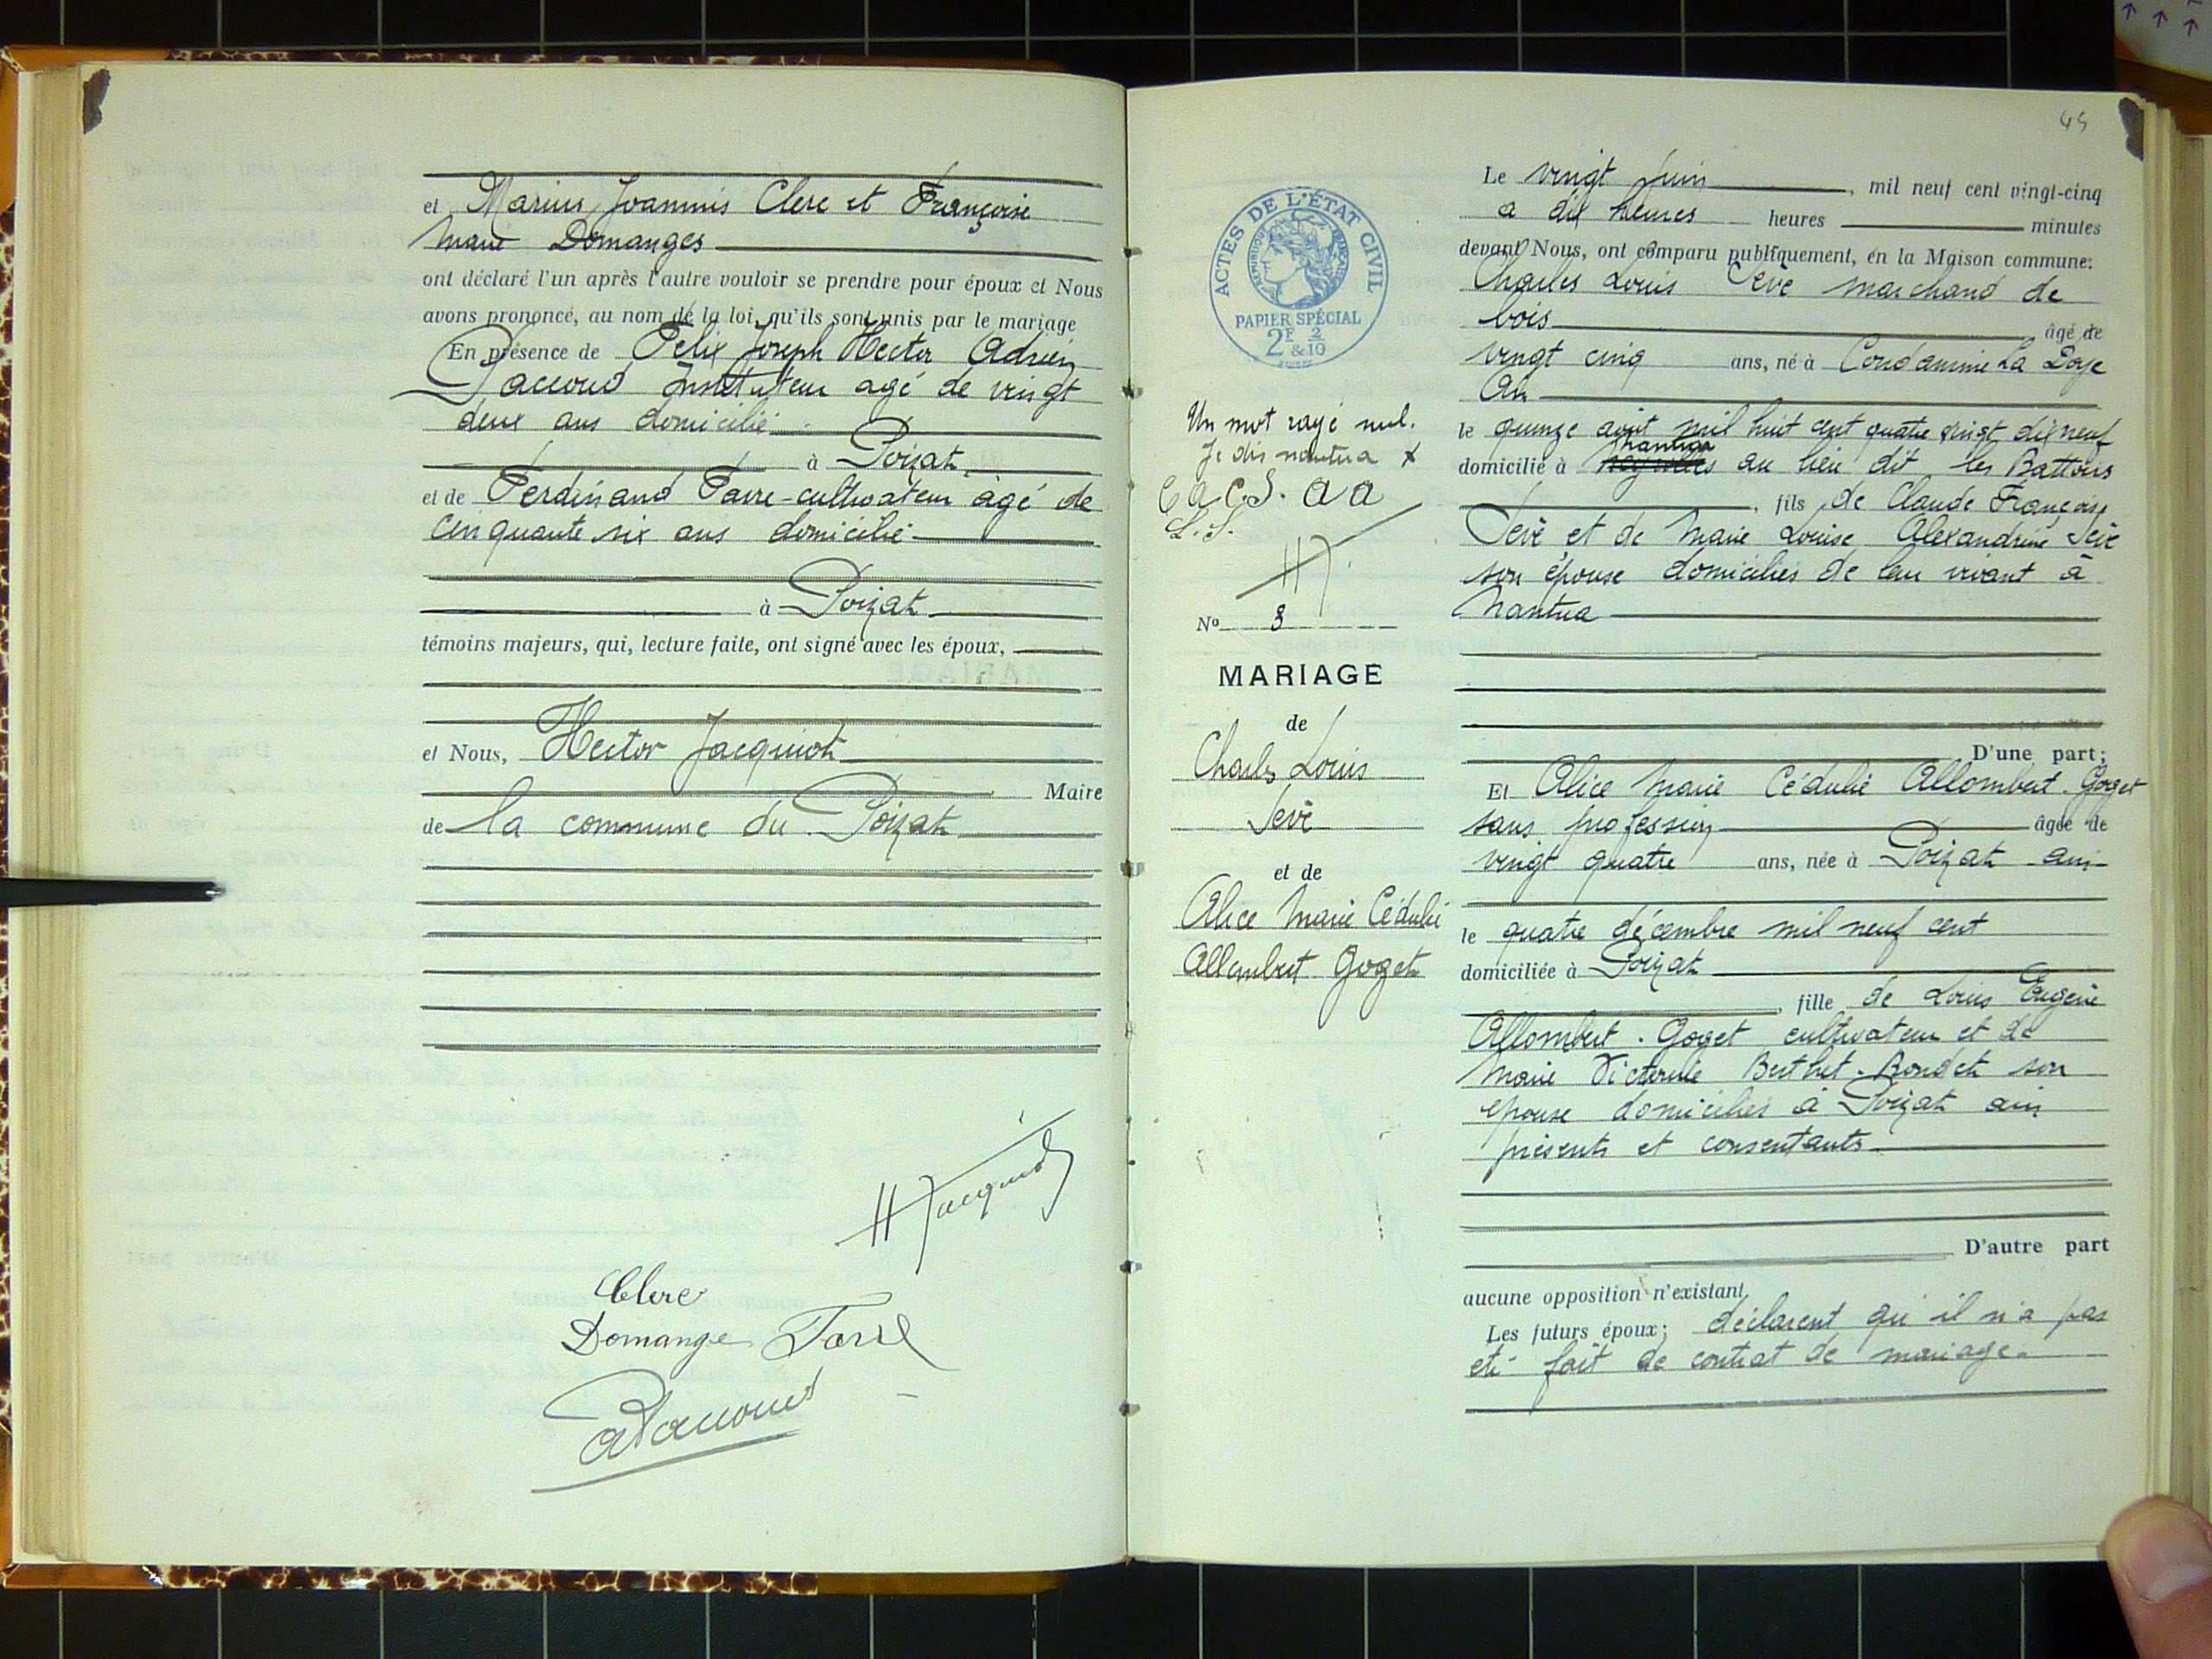 et Marius Joannnis Clerc et Françoise
Marie Domanges
ont déclaré l'un après l'autre vouloir se prendre pour époux et Nous
avons prononcé, au nom de la loi, qu'ils sont unis par le mariage
En présence de Felix Joseph Hector Adrien
Paccoud Instituteur agé de vingt
deux ans domicilié
à Poizat
et de Ferdinand Favre-cultivateur âgé de
cinquante six ans domicilié
à Poizat
témoins majeurs, qui, lecture faite, ont signé avec les époux,
et Nous, Hector Jacquiot
Maire
de la commune du Poizat
H Jacquiot
Clerc
Domange Favre
APaccoud
45
ACTES DE L'ÉTAT CIVIL
RÉPUBLIQUE FRANÇAISE
PAPIER SPÉCIAL
2F & 2/10
Un mot rayé nul.
Je dis nantua X
C a C.S. a a
L.S.
HJ.
No 3
MARIAGE
de
Charles Louis
Sève
et de
Alice Marie Cédulie
Allombert Goget
Le vingt Juin, mil neuf cent vingt-cinq
a dix heures heures minutes
devant Nous, ont comparu publiquement, en la Maison commune:
Charles Louis Sève marchand de
bois âgé de
vingt cinq ans, né à Condamine La Doye
Ain
le quinze août mil huit cent quatre vingt dix neuf
nantua
domicilié à au lieu dit les Battoirs
, fils de Claude François
Sève et de Marie Louise Alexandrine Sève
son épouse domiciliés de leur vivant à
Nantua
D'une part;
Et Alice Marie Cédulie Allombert-Goget
sans profession âgée de
vingt quatre ans, née à Poizat ain
le quatre décembre mil neuf cent
domiciliée à Poizat
, fille de Louis Eugène
Allombert-Goget cultivateur et de
Marie Victorine Berthet-Bondet son
épouse domiciliés à Poizat ain
présents et consentants
D'autre part
aucune opposition n'existant
Les futurs époux; déclarent qu'il n'a pas
été fait de contrat de mariage.